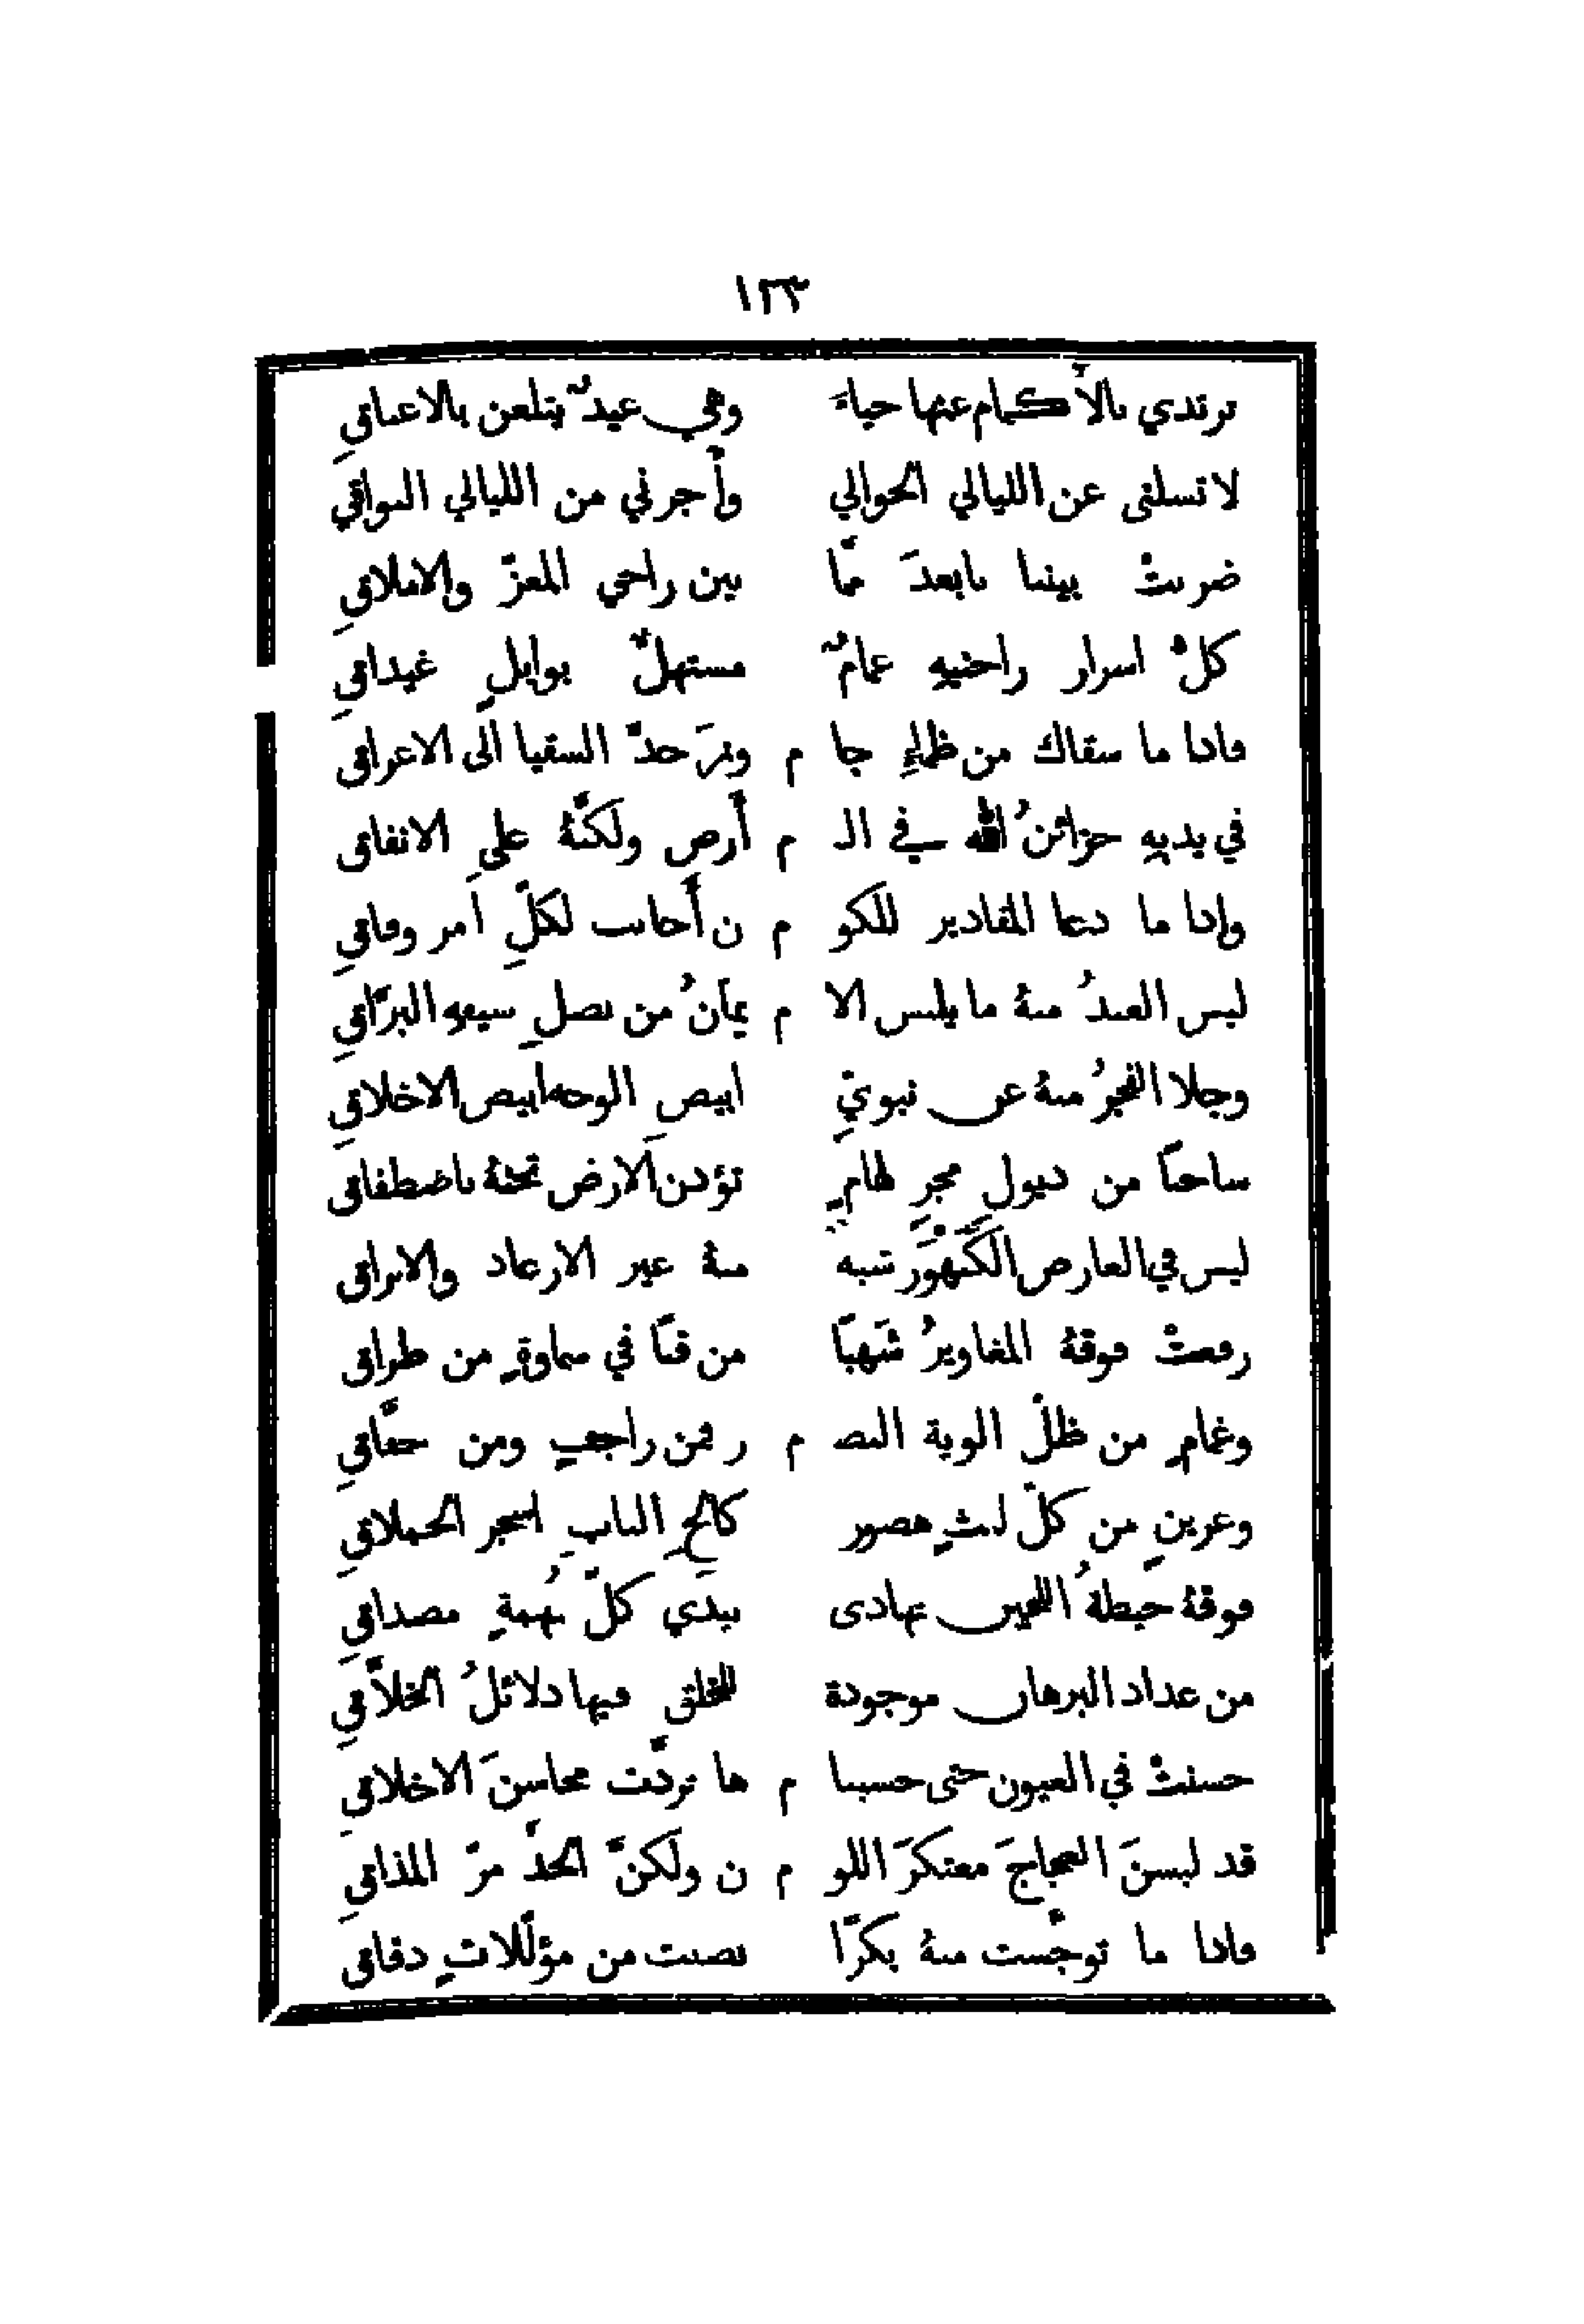 ١٢٣
ترتدي بالأكمام عنها حياءً وهي غيدٌ يتلعن بالاعناقِ
لا تسلني عن الليالي الخوالي وأجرني من الليالي البواقي
ضربتْ بيننا بابعدَ ممّا بين راجي المعزّ والاملاقِ
كلُّ اسرار راحتيهِ غمامٌ مستهلٌّ بوابلٍ غيداقِ
فاذا ما سقاك من ظماءِ جا م وز حدّ السقيا الى الاغراقِ
في يديهِ خزائنُ الله في الـ م أرضِ ولكنَّهُ على الانفاقِ
واذا ما دعا المقادير للكو م ن أجابت لكلِّ امر وفاقِ
لبس العيدُ منهُ ما يلبس الا م يمانُ من نصلِ سيفهِ البرّاقِ
وجلا الفجرُ منهُ عن نبويٍّ ابيضِ الوجه ابيض الاخلاقِ
ساحبًا من ذيولِ مجرٍ لهامٍ تؤذن الارض تحتهُ باصطفاقِ
ليس في العارض الكَنَهْوَر شبه منهُ غير الارعاد والابراقِ
رفعتْ فوقهُ المغاويرُ شُهبًا من قنًا في سماوةٍ من طراقِ
وغمامٍ من ظلّ الوية النصـ م ر فمن راجفٍ ومن خفّاقِ
وعرينٍ من كلّ ليثٍ هصور كالحِ النابِ اسجر الحملاقِ
فوقهُ خيطةُ اللجين تهادى بيدَي كلّ بُهمةٍ مصداقِ
من عداد البرهان موجودة للخلق فيها دلائلُ الخلاّقِ
حسنتْ في العيون حتى حسبنا م ها تردّت محاسنَ الاخلاقِ
قد لبسنَ العجاجَ معتكرَ اللو م ن ولكنّ الحدّ مرّ المذاقِ
فاذا ما توجّست منهُ بكرًا نصبت من مؤلّلاتٍ دقاقِ